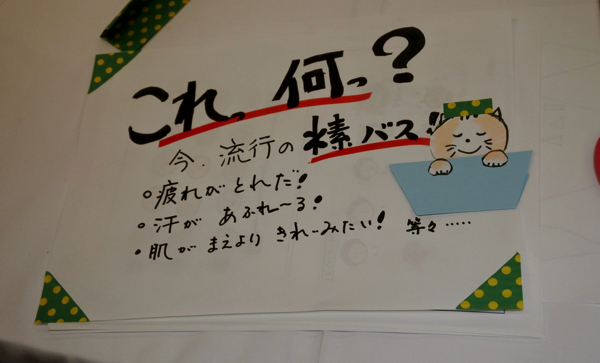 これっ 何っ?
今、流行の 水素バス!
○疲れが とれだ!
○汗が あふれ〜る!
・肌が まえより きれーみたい! 等々‥‥‥